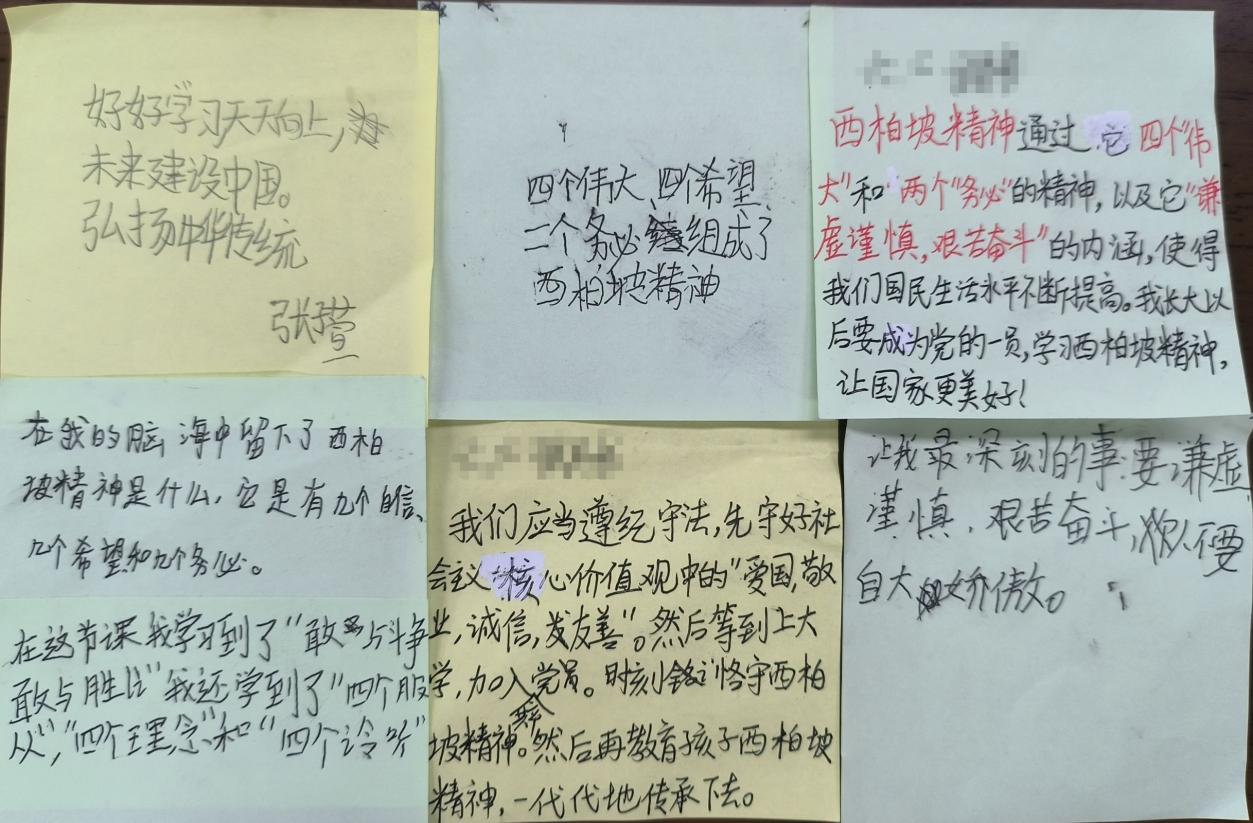 好好学习天天向上，
未来建设中国。
弘扬中华传统
张萱
四个伟大、四个希望、
二个务必组成了
西柏坡精神
西柏坡精神通过它四个"伟
大"和"两个"务必"的精神，以及它"谦
虚谨慎，艰苦奋斗"的内涵，使得
我们国民生活水平不断提高。我长大以
后要成为党的一员，学习西柏坡精神，
让国家更美好！
在我的脑海中留下了西柏
坡精神是什么，它是有几个自信、
几个希望和几个务必。
在这节课我学习到了"敢与斗争
敢与胜利"我还学到了"四个服
从","四个理念"和"四个冷听"
我们应当遵纪守法，先守好社
会主义核心价值观中的"爱国，敬
业，诚信，友善"。然后等到上大
学，加入党员。时刻恪守西柏
坡精神。然后再教育孩子西柏坡
精神，一代代地传承下去。
让我最深刻的事：要谦虚
谨慎，艰苦奋斗，不要
自大骄傲。